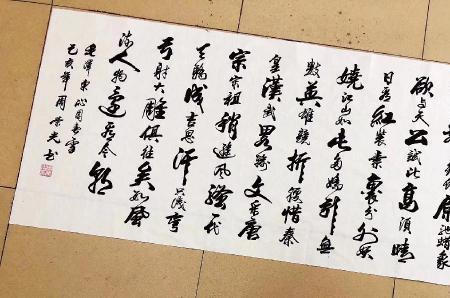 原驰蜡象
欲与天公试比高须晴
日看红装素裹分外妖
娆江山如此多娇引无
数英雄竞折腰惜秦
皇汉武略输文采唐
宗宋祖稍逊风骚一代
天骄成吉思汗只识弯
弓射大雕俱往矣数风
流人物还看今朝
毛泽东沁园春雪
己亥年周光书